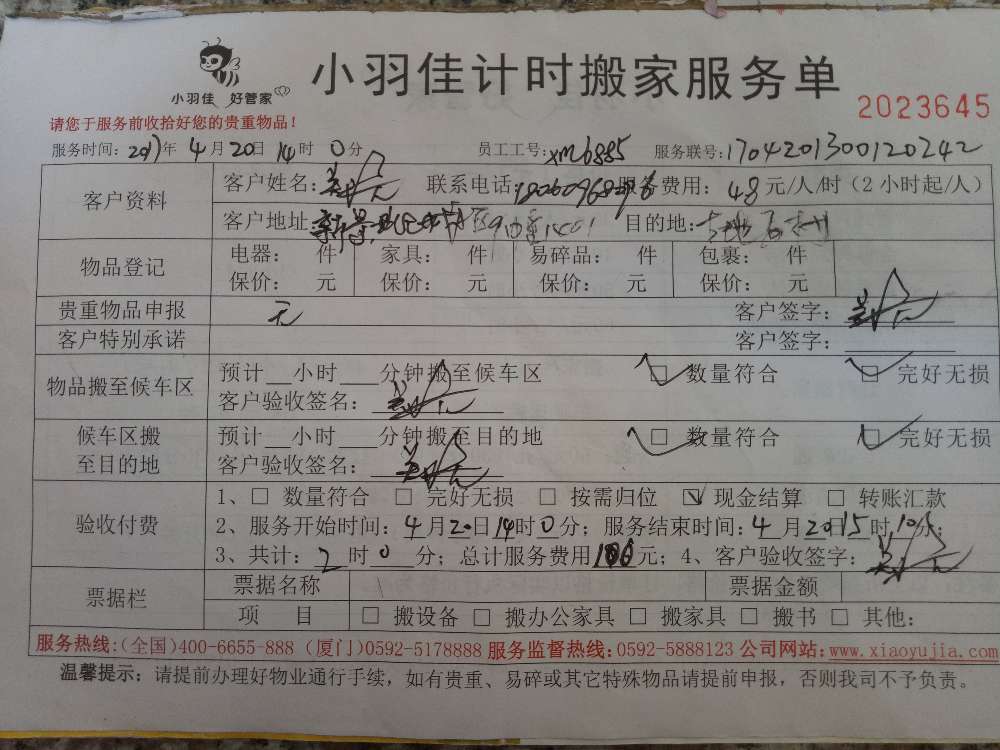 小羽佳 好管家
小羽佳计时搬家服务单
2023645
请您于服务前收拾好您的贵重物品！
服务时间：2017年 4月20日 14时 0分 员工工号：xm6885 服务联号：1704201300120242
客户资料
客户姓名： 联系电话： 服务费用：48元/人/时（2小时起/人）
客户地址： 目的地：
物品登记
电器： 件 家具： 件 易碎品： 件 包裹： 件
保价： 元 保价： 元 保价： 元 保价： 元
贵重物品申报 无 客户签字：
客户特别承诺 客户签字：
物品搬至候车区
预计__小时___分钟搬至候车区 ☑ 数量符合 ☑ 完好无损
客户验收签名：
候车区搬至目的地
预计__小时___分钟搬至目的地 ☑ 数量符合 ☑ 完好无损
客户验收签名：
验收付费
1、□ 数量符合 □ 完好无损 □ 按需归位 ☑ 现金结算 □ 转账汇款
2、服务开始时间：4月20日14时0分；服务结束时间：4月20日15时10分；
3、共计：2时0分；总计服务费用100元；4、客户验收签字：
票据栏
票据名称 票据金额
项 目 □ 搬设备 □ 搬办公家具 □ 搬家具 □ 搬书 □ 其他：
服务热线：(全国)400-6655-888 (厦门)0592-5178888 服务监督热线：0592-5888123 公司网站：www.xiaoyujia.com
温馨提示：请提前办理好物业通行手续，如有贵重、易碎或其它特殊物品请提前申报，否则我司不予负责。